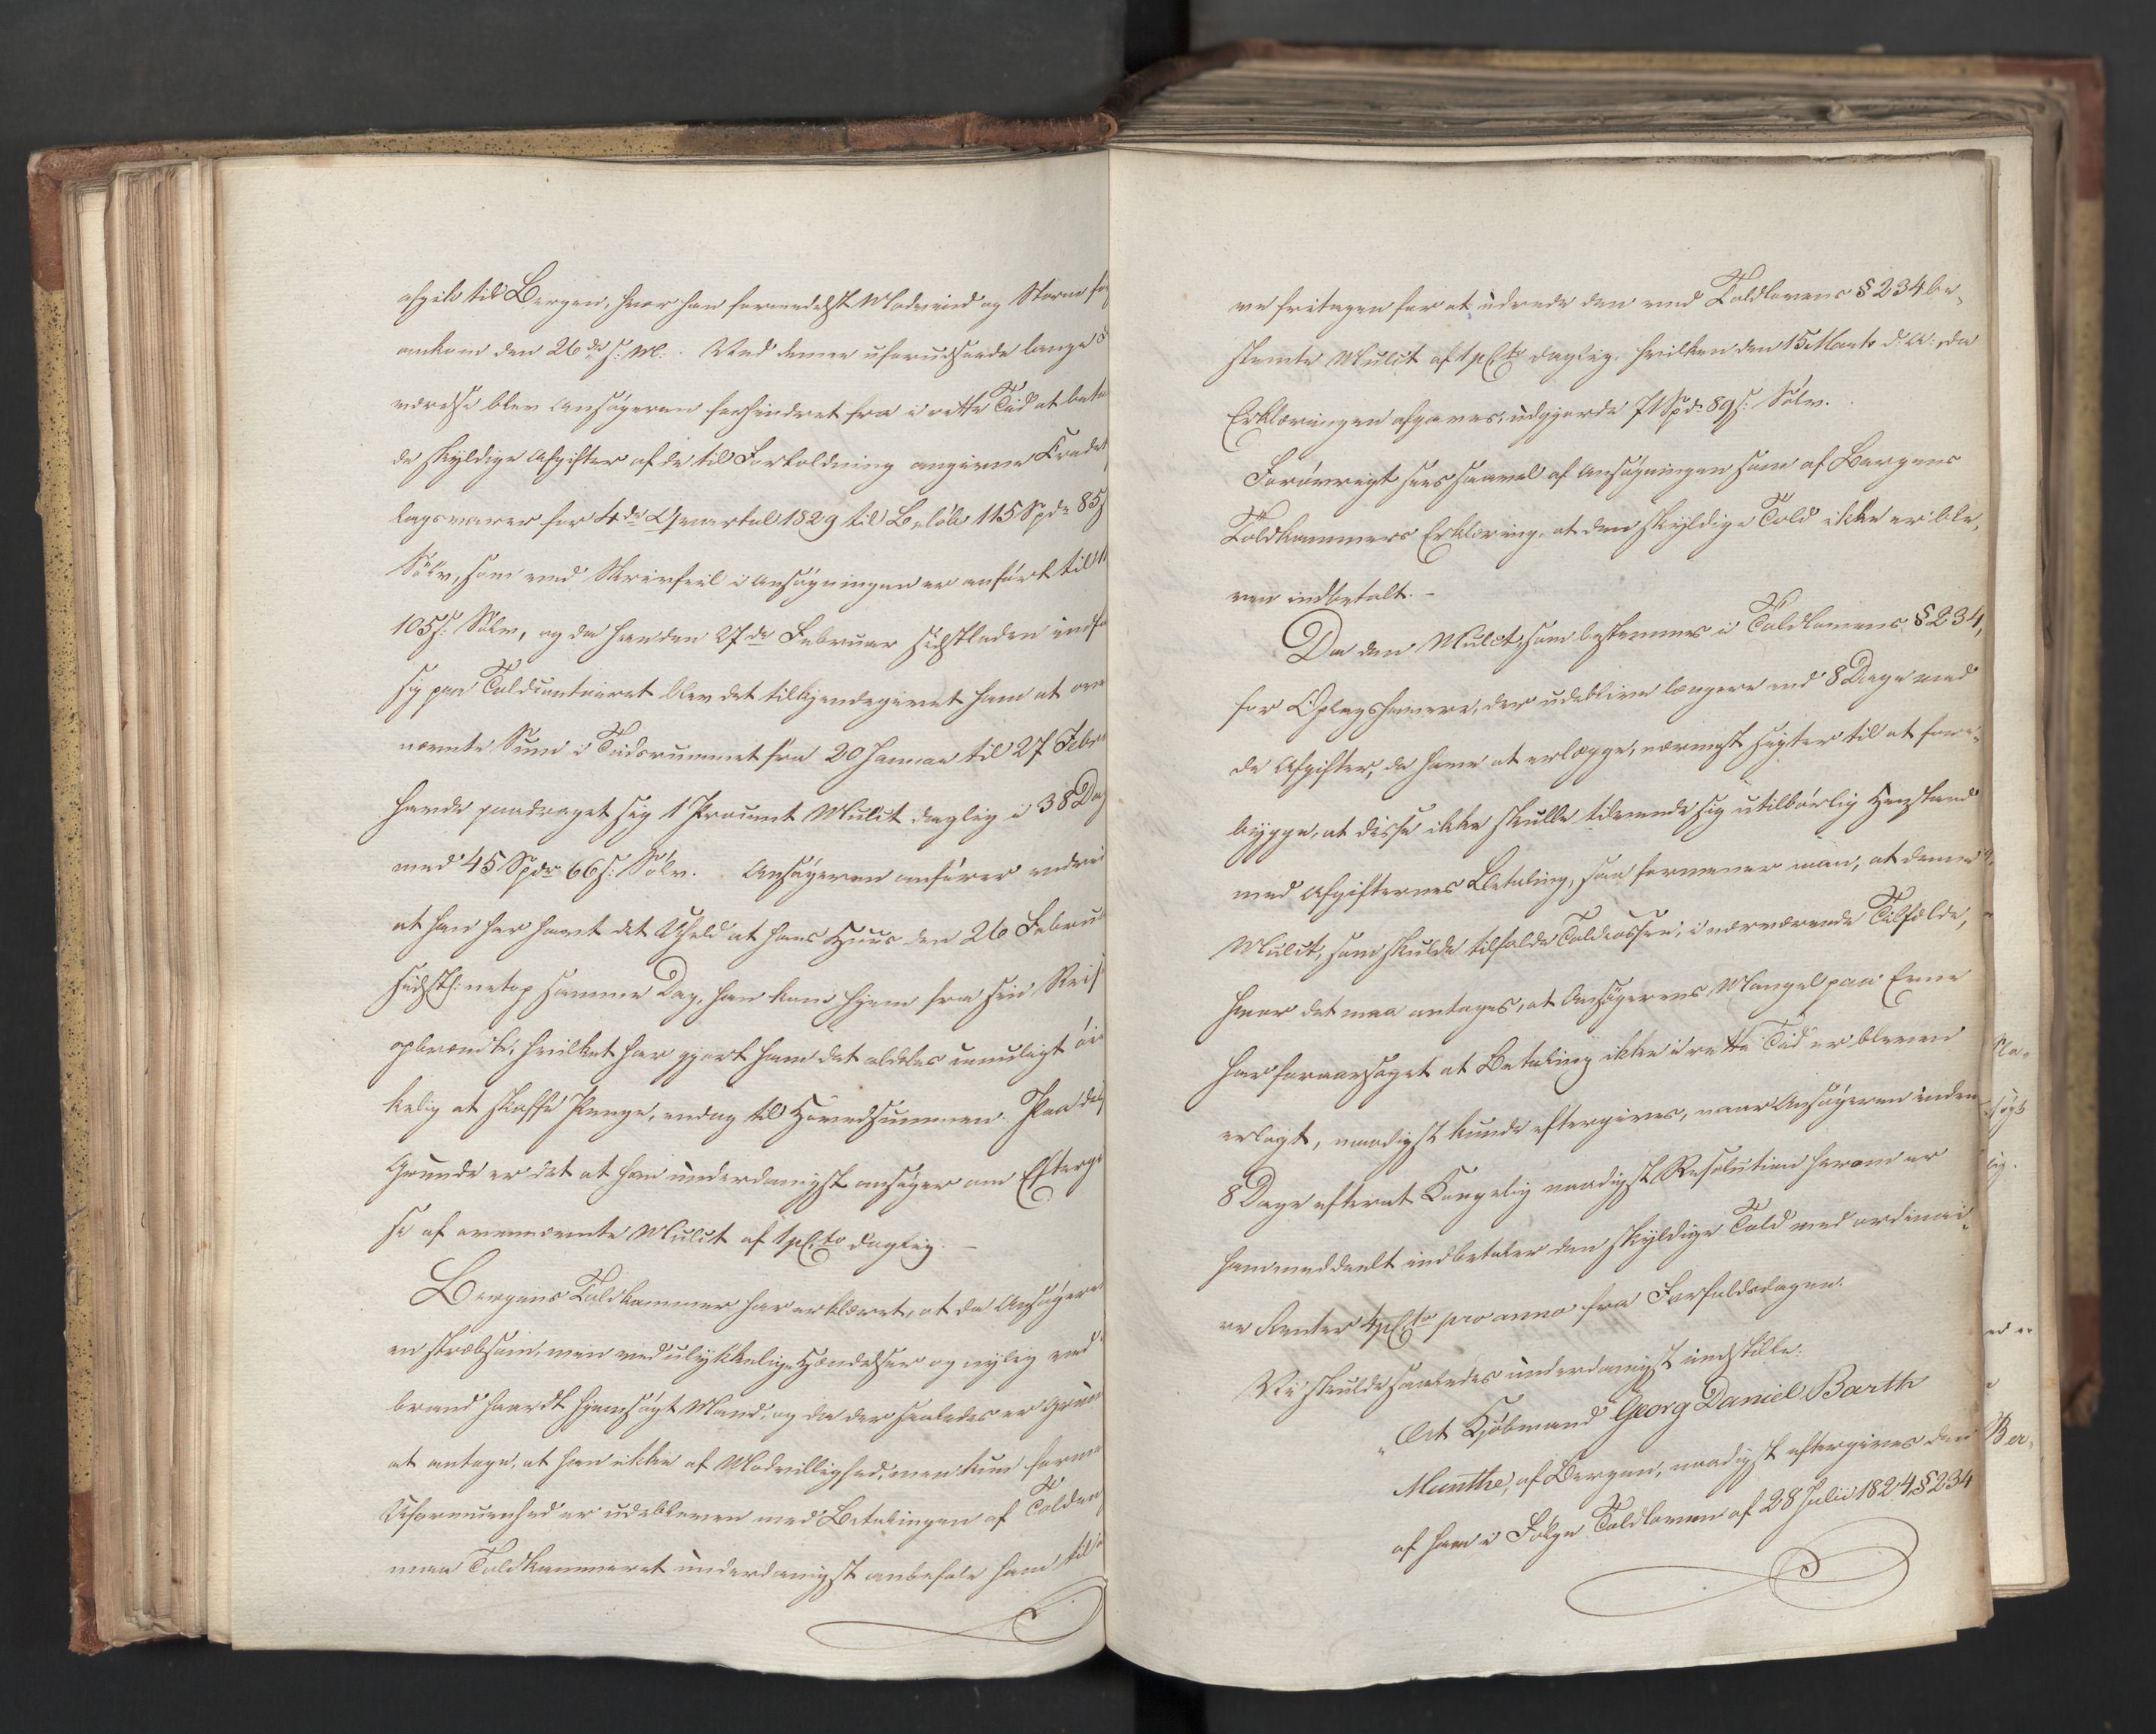 afgik til Bergen, hvor han formedelst Modvind og Storm før
ankom den 26de s: M:. Ved denne uforudseede lange
værelse blev Ansøgeren forhindret fra i rette Tid at beta
de skyldige Afgifter af de til Fortoldning angivne Credit
lagsvarer for 4de Qvartal 1829 til Beløb 115 Spdr 85 s
Sølv, som ved Skrivfeil i Ansøgningen er anført til
105 s: Sølv, og da han den 27de Februar sidstleden indf
sig paa Toldcontoiret blev det tilkjendegivet ham at ove
nævnte Sum i Tidsrummet fra 20 Januar til 27 Febru
havde paadraget sig 1 Procent Mulct daglig i 38 Dag
med 45 Spdr 66 s: Sølv. Ansøgeren anfører endvi
at han har havt det Uheld at hans Huus den 26 Februa
sidstl: netop samme Dag, han kom hjem fra sin Reis
opbrændte, hvilket har gjort ham det aldeles umuligt öi
kelig at skaffe Penge, endog til Hovedsummen. Paa dis
Grunde er det at han underdanigst ansøger om Eftergi
se af ovennævnte Mulct af 1 pCto daglig. –
Bergens Toldkammer har erklæret, at da Ansøgere
en stræbsom, men ved ulykkelige Hændelser og nylig ved
brand haardt hjemsøgt Mand, og da der saaledes er Grun
at antage, at han ikke af Modvillighed, men kun forme
Uformuenhed er udebleven med Betalingen af Tolden
maa Toldkammeret underdanigst anbefale ham til
ve fritagen for at udrede den ved Toldlovens § 234 be-
stemte Mulct af 1 pCto daglig, hvilken den 15 Marts d: A:, da
Erklæringen afgaves, udgjorde 71 Spdr 89 s: Sølv.
Forøvrigt sees saavel af Ansøgningen som af Bergens
Toldkammers Erklæring, at den skyldige Told ikke er ble-
ven indbetalt. –
Da den Mulct, som bestemmes i Toldlovens § 234,
for Oplagshavere, der udeblive længere end 8 Dage med
de Afgifter, de have at erlægge, nærmest sigter til at fore-
bygge, at disse ikke skulle tilvende sig utilbørlig Henstand
med Afgifternes Betaling, saa formener man, at denne
Mulct, som skulde tilfalde Toldcassen, i nærværende Tilfælde,
hvor det maa antages, at Ansøgerens Mangel paa Evne
har foraarsaget at Betaling ikke i rette Tid er bleven
erlagt, naadigst kunde eftergives, naar Ansøgeren inden
8 Dage efterat Kongelig naadigst Resolution herom er
ham meddeelt indbetaler den skyldige Told med ordinai-
re Renter 4 pCto pro anno fra Forfaldsdagen.
Vi skulde saaledes underdanigst indstille:
"At Kjøbmand Georg Daniel Barth
Munthe, af Bergen, naadigst eftergives den
af ham i Følge Toldloven af 28 Julii 1824, § 234